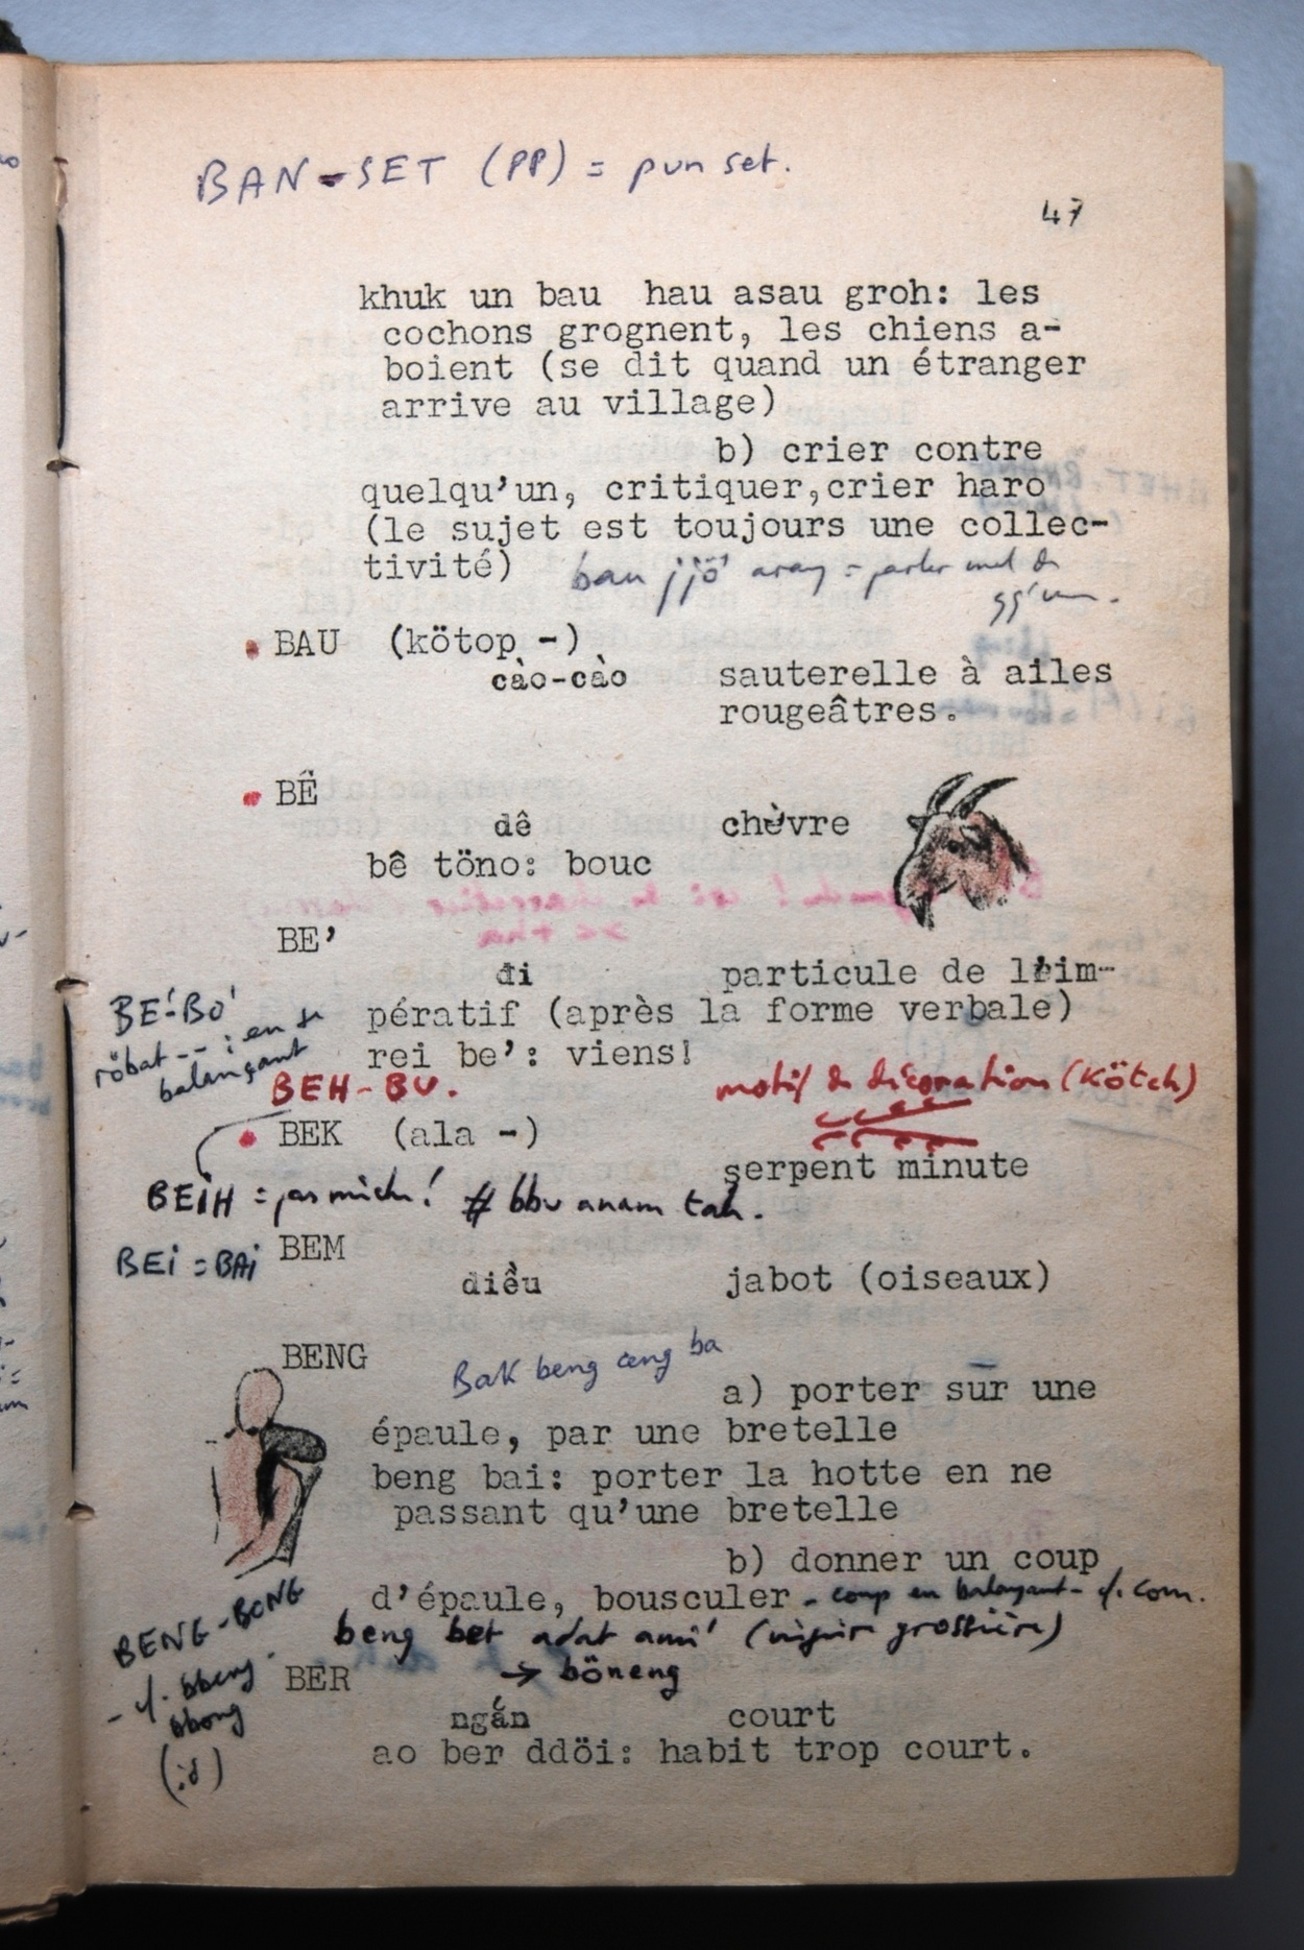 BAN-SET (PP) = pun set.
47
khuk un bau hau asau groh: les
cochons grognent, les chiens a-
boient (se dit quand un étranger
arrive au village)
b) crier contre
quelqu'un, critiquer,crier haro
(le sujet est toujours une collec-
tivité) bau jjö' arang = parler mal de
qq'un.
BAU (kötop -)
cào-cào sauterelle à ailes
rougeâtres.
BÊ
dê chèvre
bê töno: bouc
BE'
đi particule de l'im-
BE'-BO'
pératif (après la forme verbale)
röbat -- : en se
balançant
rei be': viens!
BEH-BU. motif de décoration (Kötch)
BEK (ala -)
serpent minute
BEIH = pas mich! # bbu anam tah.
BEI = BAI
BEM
diều jabot (oiseaux)
BENG
Bak beng ceng ba
a) porter sur une
épaule, par une bretelle
beng bai: porter la hotte en ne
passant qu'une bretelle
b) donner un coup
d'épaule, bousculer - coup en balançant - cf. com.
BENG-BONG
beng bet adat ami' (injure grossière)
→ böneng
- cf. bbeng
bbong
(id)
BER
ngắn court
ao ber ddöi: habit trop court.